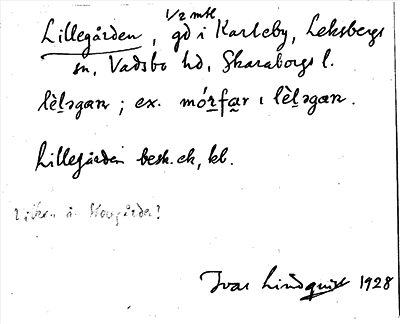 1/2 mtl
Lillegården, gd i Karleby, Leksbergs
sn, Vadsbo hd, Skaraborgs l.
lèḷəgaɴ ; ex. mórfaṟ ı lèḷəgaɴ.
Lillegården besk. ek, kb.
å. Storgården?
Ivar Lindquist 1928